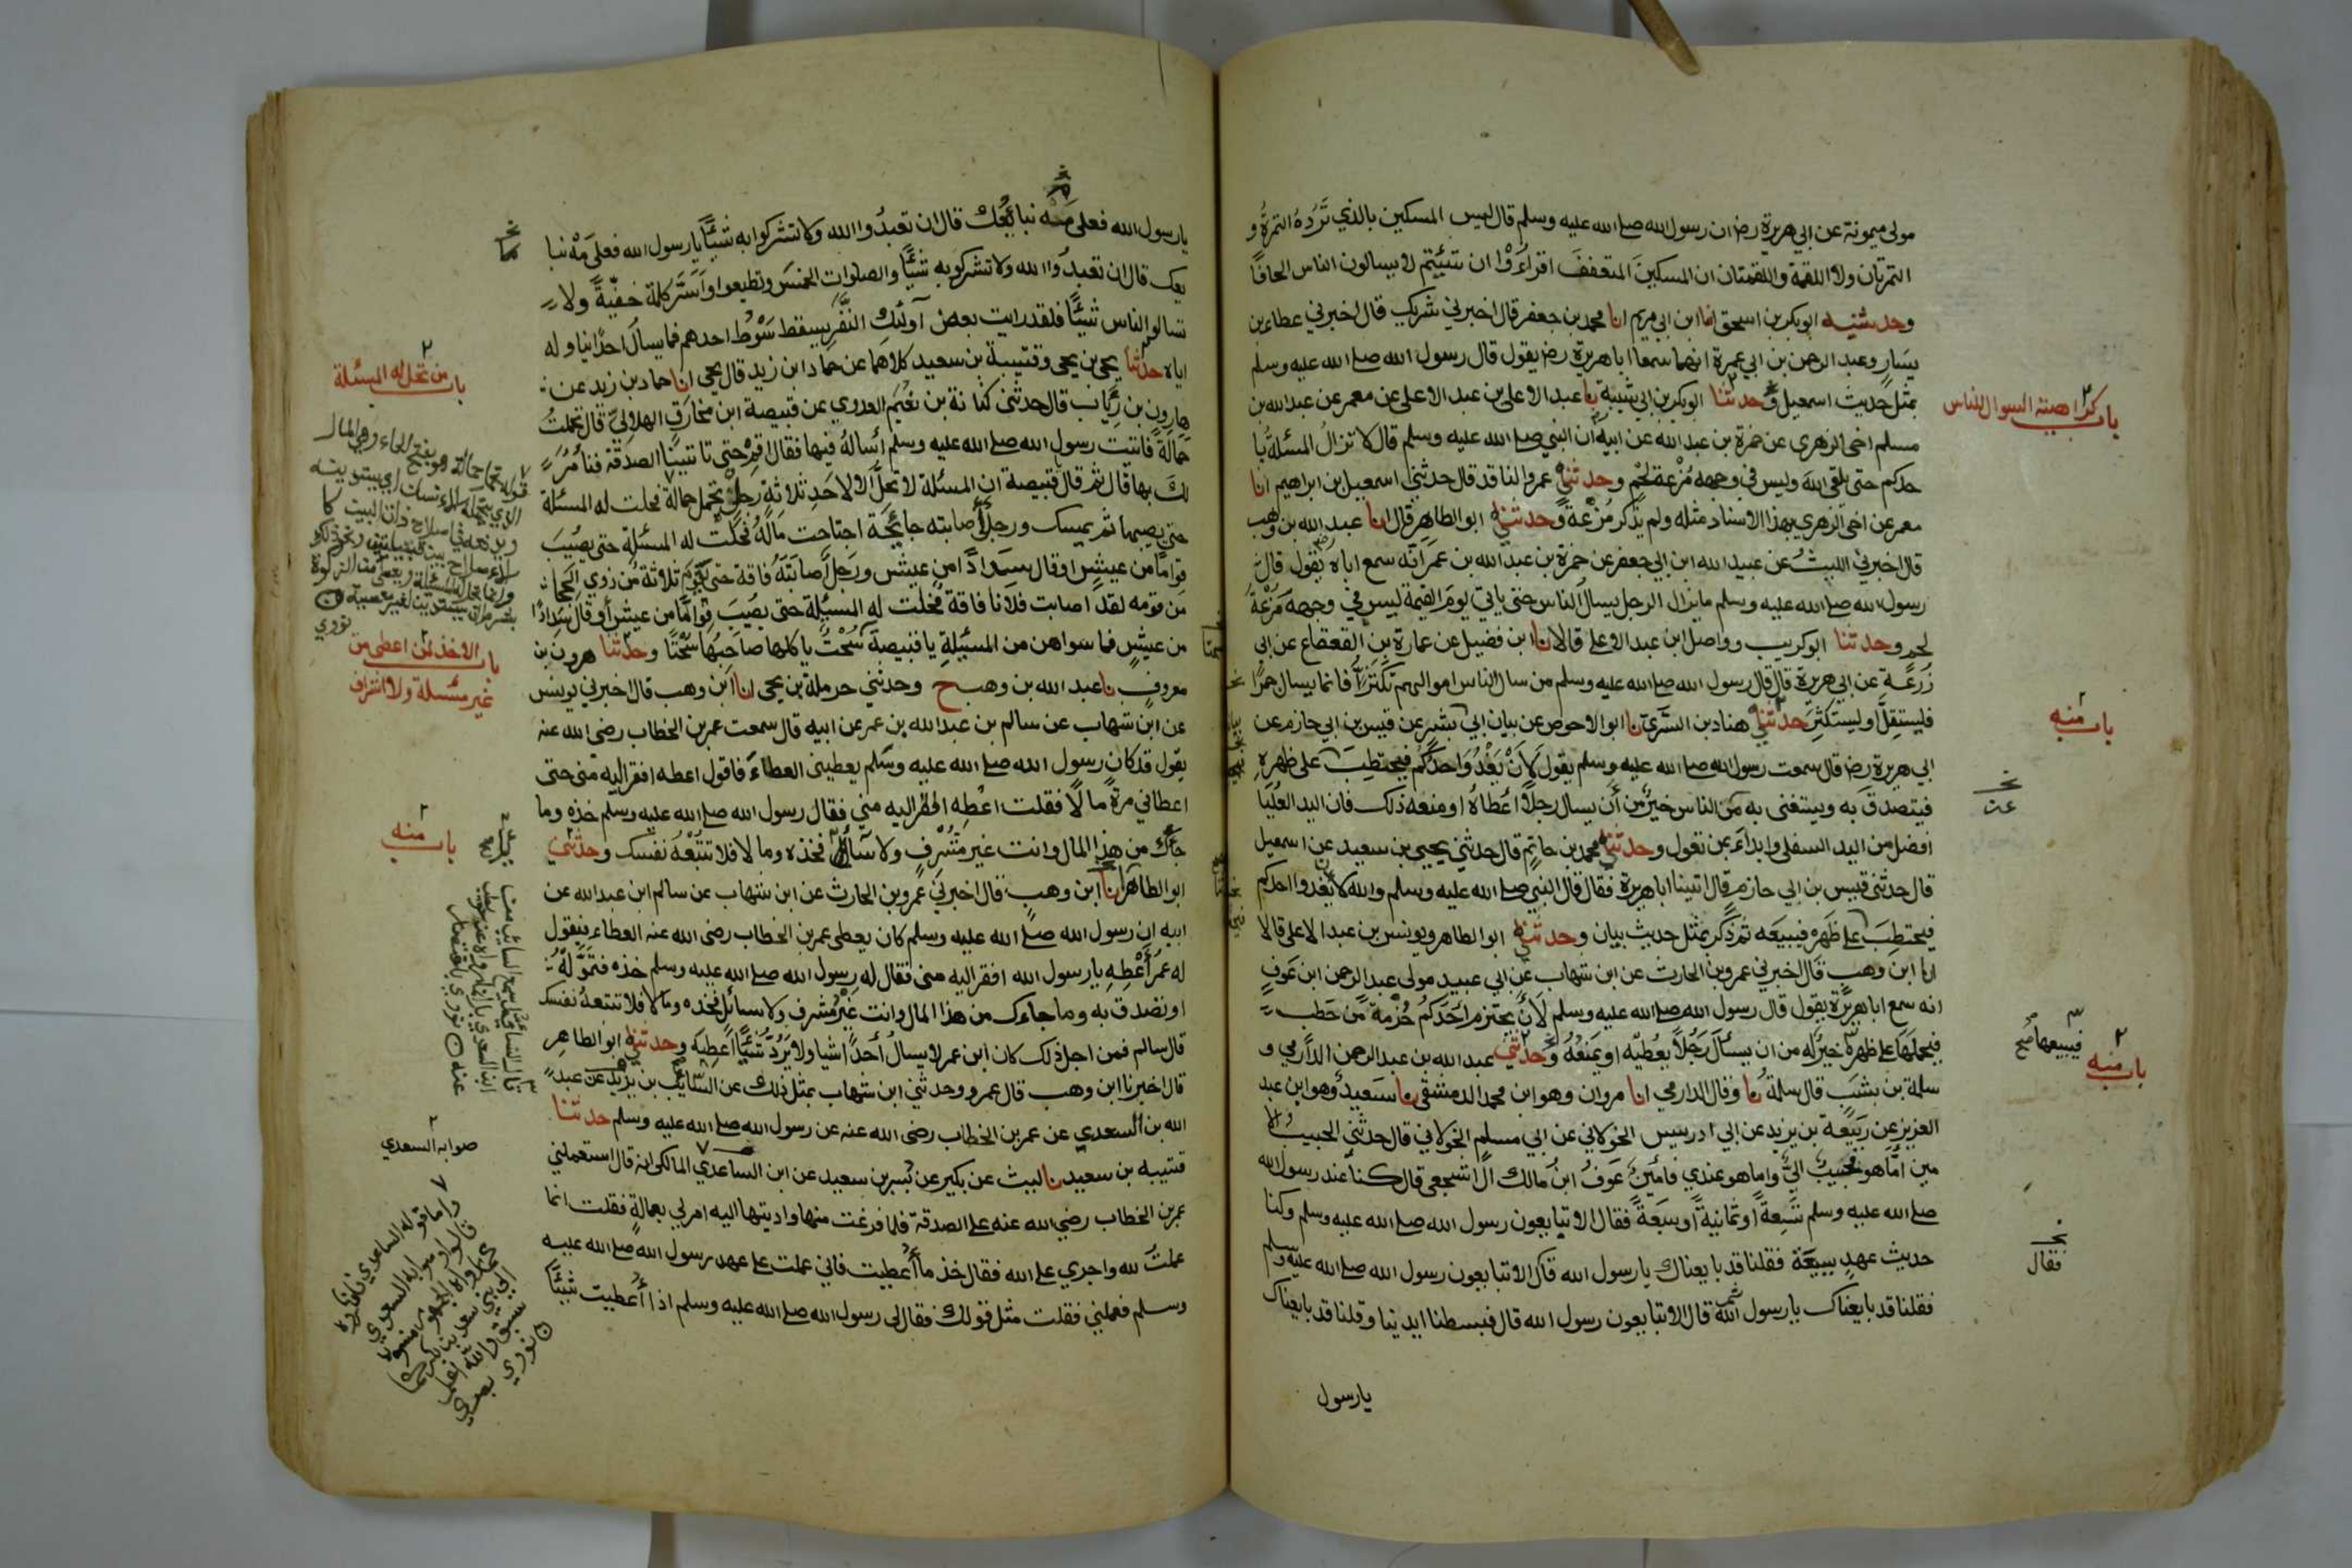 مولى ميمونة عن ابي هريرة رض ان رسول الله صلى الله عليه وسلم قال ليس المسكين بالذي تَرُدهُ التمرةُ و
التمرتان ولا اللقمة واللقمتان ان المسكينَ المتعففَ اقرأوا ان شئيتم لا يسالون الناس الحافًا
وحدثنيه ابوبكر بن اسحق انا ابن ابي مريم انا محمد بن جعفر قال اخبرني شريك قال اخبرني عطاء بن
يسارٍ وعبد الرحمن بن ابي عمرة انهما سمعا ابا هريرة رض يقول قال رسول الله صلى الله عليه وسلم
بمثل حديث اسمعيل وحدثنا ابوبكر بن ابي شيبة نا عبد الاعلى بن عبد الاعلى عن معمر عن عبد الله بن
باب كراهية السوال للناس
مسلم اخى الزهرى عن حمزة بن عبد الله عن ابيه ان النبي صلى الله عليه وسلم قال لا تزالُ المسئلةُ با
حدكم حتى يلقى الله وليس في وجهه مُزْعة لحْمٍ وحدثني عمرو الناقد قال حدثني اسمعيل بن ابراهيم انا
معمر عن اخي الزهري بهذا الاسناد مثله ولم يذكر مُزْعةً وحدثني ابو الطاهر قال انا عبد الله بن وهب
قال اخبرني الليثُ عن عبيد الله ابن ابي جعفر عن حمزة بن عبد الله بن عمر انّه سمع اباه يقول قال
رسول الله صلى الله عليه وسلم ما يزال الرجل يسال الناس حتى ياتي يوم القيمة ليس في وجهه مُزْعةُ
لحم وحدثنا ابو كريب وواصل ابن عبد الاعلى قالا نا ابن فضيل عن عمارة بن القعقاع عن ابي
زُرعة عن ابي هريرة قال قال رسول الله صلى الله عليه وسلم من سال الناس اموالهم تكثرًا فانما يسال جمرًا
فليستقِلَّ او ليستكثِرَ حدثني هناد بن السَّري نا ابو الاحوص عن بيان ابي بشر عن قيس بن ابي حازم عن
باب منه
ابي هريرة رض قال سمعت رسول الله صلى الله عليه وسلم يقول لَأَنْ يَغْدُوَ احدُكُم فيحتطِبَ على ظهرهِ
فيتصدقَ به ويستغنى به من الناس خيرٌ من أن يسال رجلًا أعطاهُ او منعه ذلك فان اليد العُليَا
عن
افضل من اليد السفلى وابداء بمن تعول وحدثني محمد بن حاتِمٍ قال حدثني يحيى بن سعيد عن اسمعيل
قال حدثني قيس بن ابي حازم قال اتينا ابا هريرة فقال قال النبي صلى الله عليه وسلم والله لان يغدوا احدكم
فيحتطِبَ على ظهره فيبيعَه ثم ذكر بمثل حديث بيان وحدثني ابو الطاهر ويونس بن عبد الاعلى قالا
انا ابن وهبٍ قال اخبرني عمرو بن الحارث عن ابن شهاب عن ابي عبيد مولى عبد الرحمن ابن عَوفٍ
انه سمع ابا هريرة يقول قال رسول الله صلى الله عليه وسلم لَأَن يحتزم أحَدُكُم حُزْمةً من حَطب
فيبيعها صح
فيحملَهَا على ظهره خيرٌ له من ان يسألَ رَجُلًا يعْطيه او يَمنَعُهُ وحدثني عبد الله بن عبد الرحمن الدَّارمي و
باب منه
سلمة بن بشبَب قال سلمةُ نا وقال الدارمي انا مروان وهو ابن محمد الدمشقى نا سَعيدٌ وهو ابن عبد
العزيز عن ربيعة بن يزيد عن ابي ادريس الخولاني عن ابي مسلم الخولاني قال حدثني الحبيبُ الا
مين امَّا هو فحبيبٌ اليَّ واما هو عندي فأمينٌ عَوفُ ابنُ مالك الاشجعي قال كنا عند رسول الله
صلى الله عليه وسلم تسِعةً او ثمانيةً او سبَعةً فقال الا تبايعون رسول الله صلى الله عليه وسلم وكنا
حديث عهدٍ ببيعَة فقلنا قد بايعناك يا رسول الله قال الا تبايعون رسول الله صلى الله عليه وسلم
فقال
فقلنا قد بايعناك يا رسول الله ثم قال الا تبايعون رسول الله قال فبسطنا ايدينا وقلنا قد بايعناك
يا رسول
يا رسول الله فعلى مَه نبايُعك قال ان تعبدُوا الله ولا تشركوا به شيئًا يا رسول الله فعلى مَهْ نبا
يعك قال ان تعبدُوا الله ولا تشركو به شيئًا والصلوات الخمسَ وتطيعوا وأسَرَّ كلمة خفيّةً ولا
تسالو الناس شيئًا فلقد رايت بعض أولئك النَّفَرِ يسقط سَوْطُ احدهم فما يسالُ احدًا يناوله
اياه حدثنا يحيى بن يحيى وقتيبة بن سعيد كلاهما عن حماد ابن زيد قال يحيى انا حماد بن زيد عن
باب من تحل له المسئلة
هارون بن رِيَاب قال حدثني كنانة بن نعُيم العدوي عن قبيصة ابن مخارقٍ الهلاليّ قال تحملتُ
حَمالَةً فاتيت رسول الله صلى الله عليه وسلم أسالهُ فيها فقال اقِمْ حتى تاتينا الصدقة فنأمُرَ
لك بها قال ثم قال يا قبيصة ان المسئلة لا تحلُّ الا لاحَدِ ثلاثةٍ رجلٍ تحمل حمالة فحلت له المسئلة
حتى يصيبها ثم يمسك ورجلٌ أصابته جائِحَة اجتاحت مالَهُ فحَلَّت له المسئلة حتى يصُيبَ
قِوَامًا من عيشٍ او قال سِدادًا من عيش ورَجلٍ أصابَتهُ فَاقة حتى يقوم ثلاثةٌ من ذوي الحِجَا
من قومه لقد اصابت فلانا فاقة فحلت له المسئلة حتى يصُيبَ قِوامًا من عيشٍ أو قال سِدادًا
من عيشٍ فما سواهن من المسئيلةِ يا قبيصة سُحْتٌ ياكلها صاحَبُها سحُتًا وحدثنا هرون بن
باب الاخذ لمن اعطى من
غير مسئلة ولا اشراف
معروف نا عبد الله بن وهب ح وحدثني حرملة بن يحيى انا ابن وهب قال اخبرني يونس
عن ابن شهاب عن سالم بن عبد الله بن عمر عن ابيه قال سمعت عمر بن الخطاب رضى الله عنه
يقول قد كان رسول الله صلى الله عليه وسَلم يعطيني العطاءَ فاقول اعطه افقر اليه منى حتى
اعطاني مرةً مالًا فقلت اعْطِه افقر اليه مني فقال رسول الله صلى الله عليه وسلم خذه وما
جاءك من هذا المال وانت غير مُشْرفٍ ولا سائل فخذه وما لا فلا تتبعْهُ نفسك وحدثني
باب منه
ابو الطاهر انا ابن وهب قال اخبرني عمرو بن الحارث عن ابن شهاب عن سالم ابن عبد الله عن
ابيه ان رسول الله صلى الله عليه وسلم كان يعطى عمر بن الخطاب رضى الله عنه العطاء فيقول
له عمُر أَعْطِهِ يا رسول الله افقر اليه منى فقال له رسول الله صلى الله عليه وسلم خذه فتمَوَّلهُ
او تصدق به وما جاءك من هذا المال وانت غيْر مُشرف ولا سائل فخذه وما لا فلا تتبعهُ نفسك
قال سالم فمن اجل ذلك كان ابن عمر لا يسالُ أحدًا شيا ولا يَرُدُّ شيئًا اُعطِيَه وحدثني ابو الطاهر
قال اخبرنا ابن وهب قال عمرو وحدثني ابن شهاب بمثل ذلك عن السَّايب بن يزيد عن عبد
الله بن السعدي عن عمر بن الخطاب رضى الله عنه عن رسول الله صلى الله عليه وسلم حدثنا
صوابه السعدي
قتيبه بن سعيد نا ليث عن بكير عن بُسر بن سعيد عن ابن الساعدي المالكي انه قال استعملني
عمر بن الخطاب رضي الله عنه على الصدقة فلما فرغت منها واديتها اليه امر لي بعمالةٍ فقلت انما
عملتُ لله واجري على الله فقال خذ ما أُعطيت فاني عملت على عهد رسول الله صلى الله عليه
وسلم فعملني فقلت مثل قولك فقال لى رسول الله صلى الله عليه وسلم اذا اُعطيت شيئًا